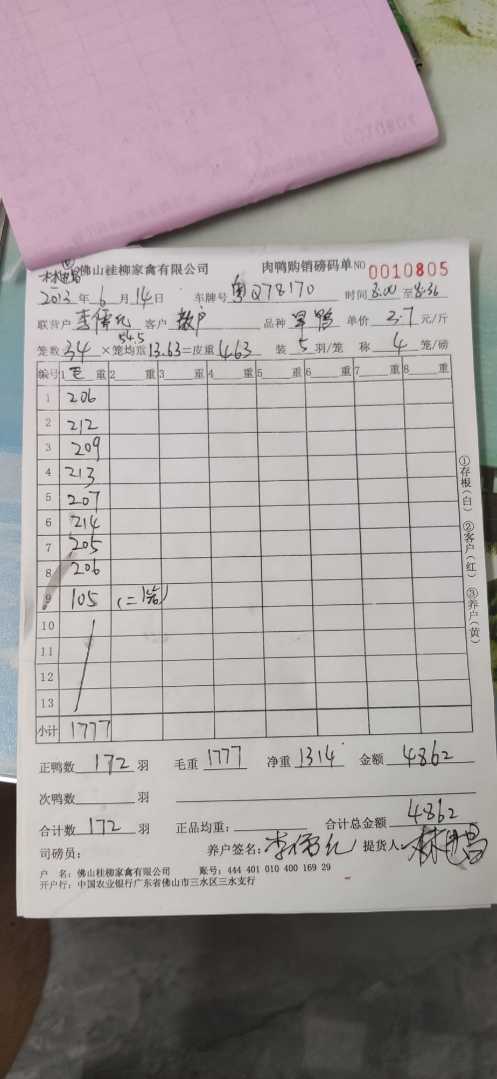 佛山桂柳家禽有限公司 肉鸭购销磅码单NO 0010805
2013年6月14日 车牌号 粤Q78170 时间 8:00 至 8:36
联营户 客户 散户 品种 旱鸭 单价 3.7 元/斤
54.5
笼数 34 ×笼均重 13.63=皮重 463 装 5 羽/笼 称 4 笼/磅
编号 1 毛 重 2 重 3 重 4 重 5 重 6 重 7 重 8 重
1 206
2 212
3 209
4 213
5 207
6 214
7 205
8 206
9 105
10
11
12
13
小计 1777
①存根(白) ②客户(红) ③养户(黄)
正鸭数 172 羽 毛重 1777 净重 1314 金额 4862
次鸭数 羽
合计数 172 羽 正品均重: 合计总金额 4862
司磅员: 养户签名: 提货人
户 名: 佛山桂柳家禽有限公司 账号: 444 401 010 400 169 29
开户行: 中国农业银行广东省佛山市三水区三水支行